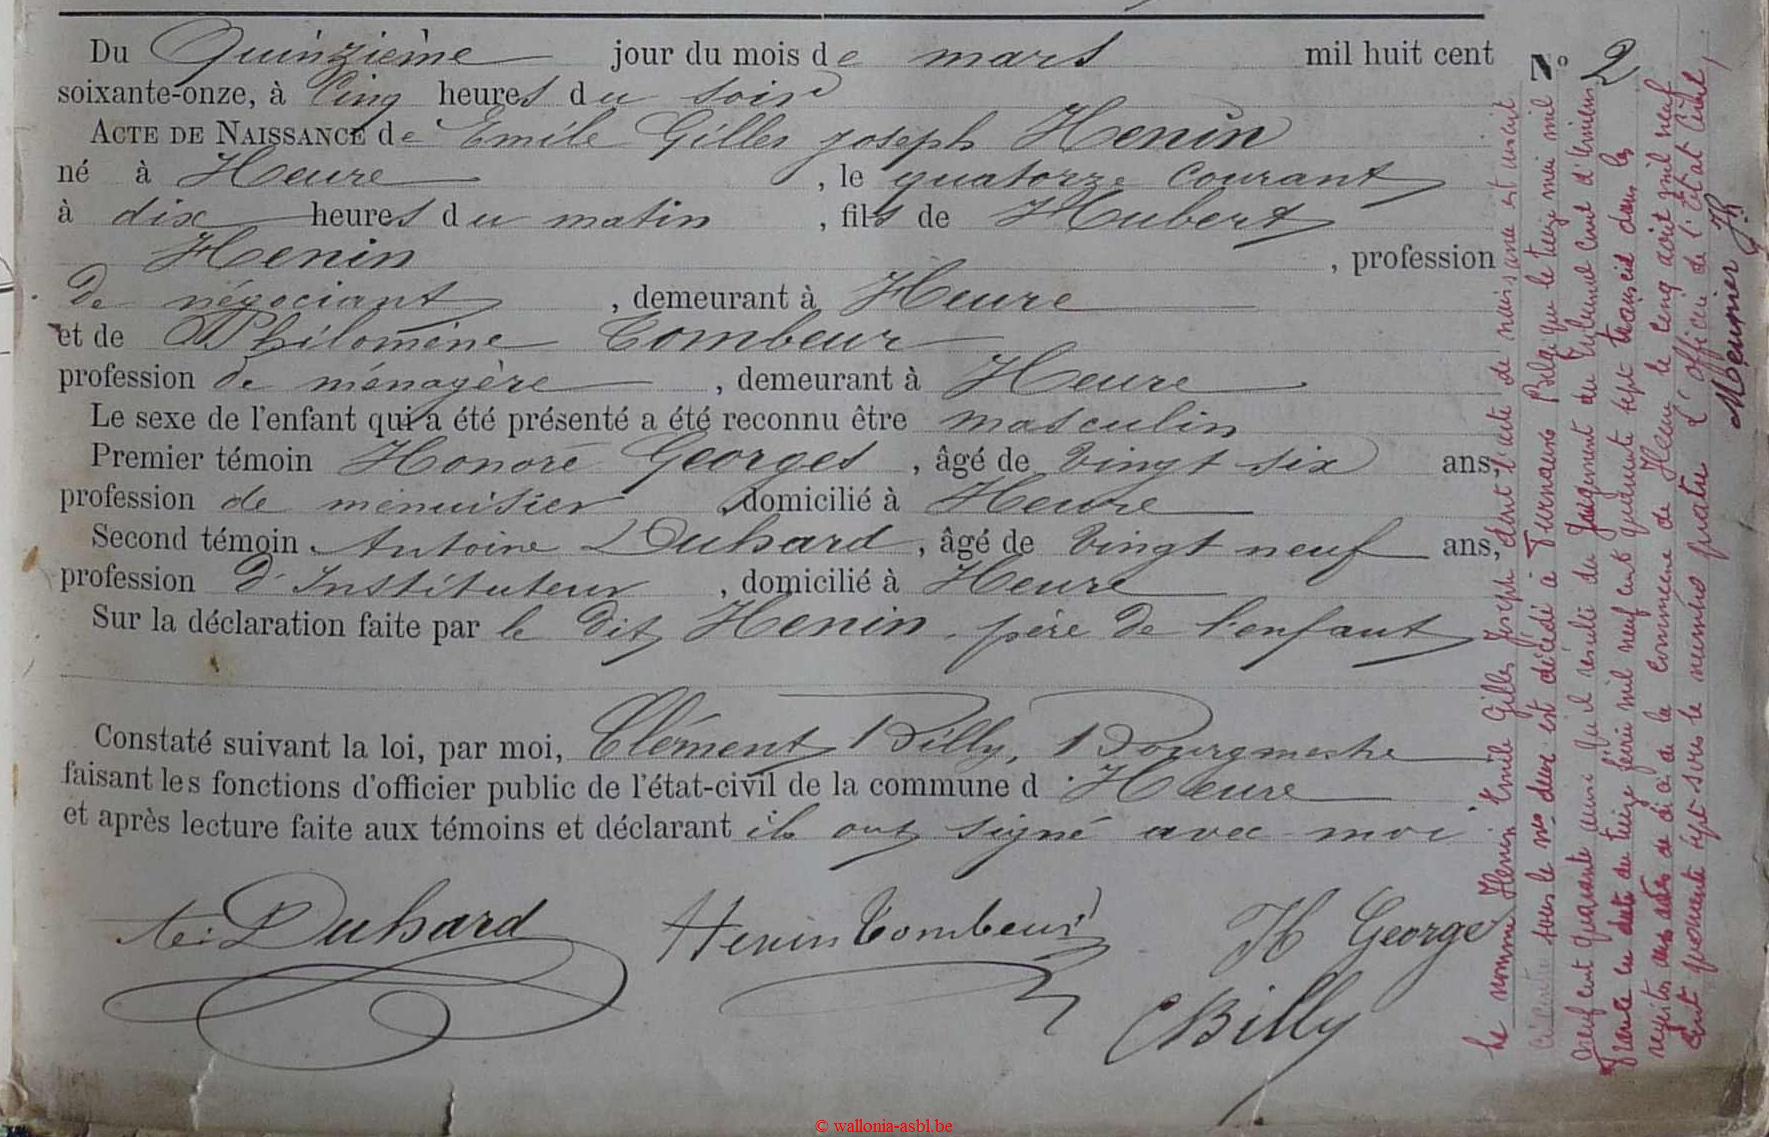 Du Quinzième jour du mois de mars mil huit cent
soixante-onze, à Cinq heures du soir
ACTE DE NAISSANCE de Emile Gilles joseph Henin
né à Heure , le quatorze Courant
à dix heures du matin , fils de Hubert
Henin , profession
de négociant , demeurant à Heure
et de Philomène Tombeur
profession de ménagère , demeurant à Heure
Le sexe de l'enfant qui a été présenté a été reconnu être masculin
Premier témoin Honoré Georges , âgé de vingt six ans,
profession de menuisier , domicilié à Heure
Second témoin Antoine Duhard , âgé de vingt neuf ans,
profession d'Instituteur , domicilié à Heure
Sur la déclaration faite par le dit Henin, père de l'enfant
Constaté suivant la loi, par moi, Clément Billy, Bourgmestre
faisant les fonctions d'officier public de l'état-civil de la commune d'Heure
et après lecture faite aux témoins et déclarant ils ont signé avec moi.
Duhard Henin Tombeur H George
CBilly
N° 2
Le nommé Henin Emile Gilles Joseph dont l'acte de naissance est inscrit
ci contre sous le no deux est décédé à Furnaux Belgique le treize mai mil
neuf cent quarante ainsi qu'il résulte du Jugement du tribunal civil d'Amiens
France en date du treize février mil neuf cent quarante sept transcrit dans les
registres aux actes de décès de la commune de Heure le cinq août mil neuf
cent quarante sept sous le numéro quatre. L'officier de l'Etat Civil,
Meunier Jh
© wallonia-asbl.be